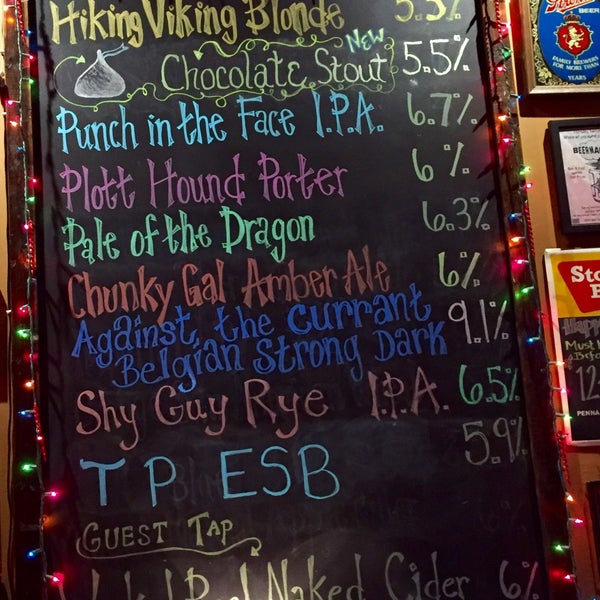 Hiking Viking Blonde 5.5%
NEW
Chocolate Stout 5.5%
Punch in the Face I.P.A. 6.7%
Plott Hound Porter 6%
Pale of the Dragon 6.3%
Chunky Gal Amber Ale 6%
Against the currant 9.1%
Belgian Strong Dark
Shy Guy Rye I.P.A. 6.5%
TP ESB 5.9%
GUEST TAP
Naked Cider 6%
BEER
FAMILY BREWERS
FOR MORE THAN
YEARS
Must
12
PENNA